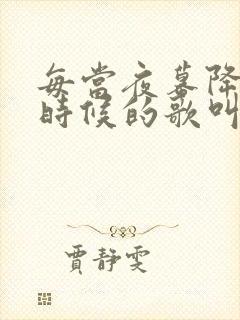 每當夜幕降
時候的歌叫
賈靜雯